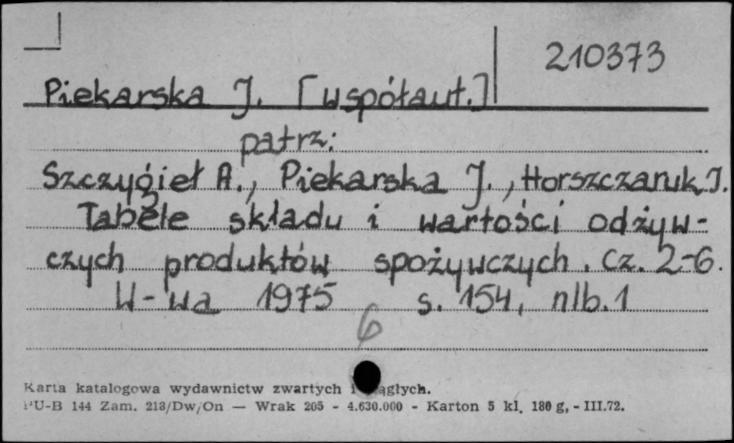 210373
Piekarska J. [współaut.]
patrz:
Szczygieł A., Piekarska J., Horszczaruk J.
Tabele składu i wartości odżyw-
czych produktów spożywczych. Cz. 2-6.
W-wa 1975 s. 154, nlb. 1
6
Karta katalogowa wydawnictw zwartych i ciągłych.
PU-B 144 Zam. 213/Dw/On — Wrak 205 - 4.630.000 - Karton 5 kl. 180 g, - III.72.